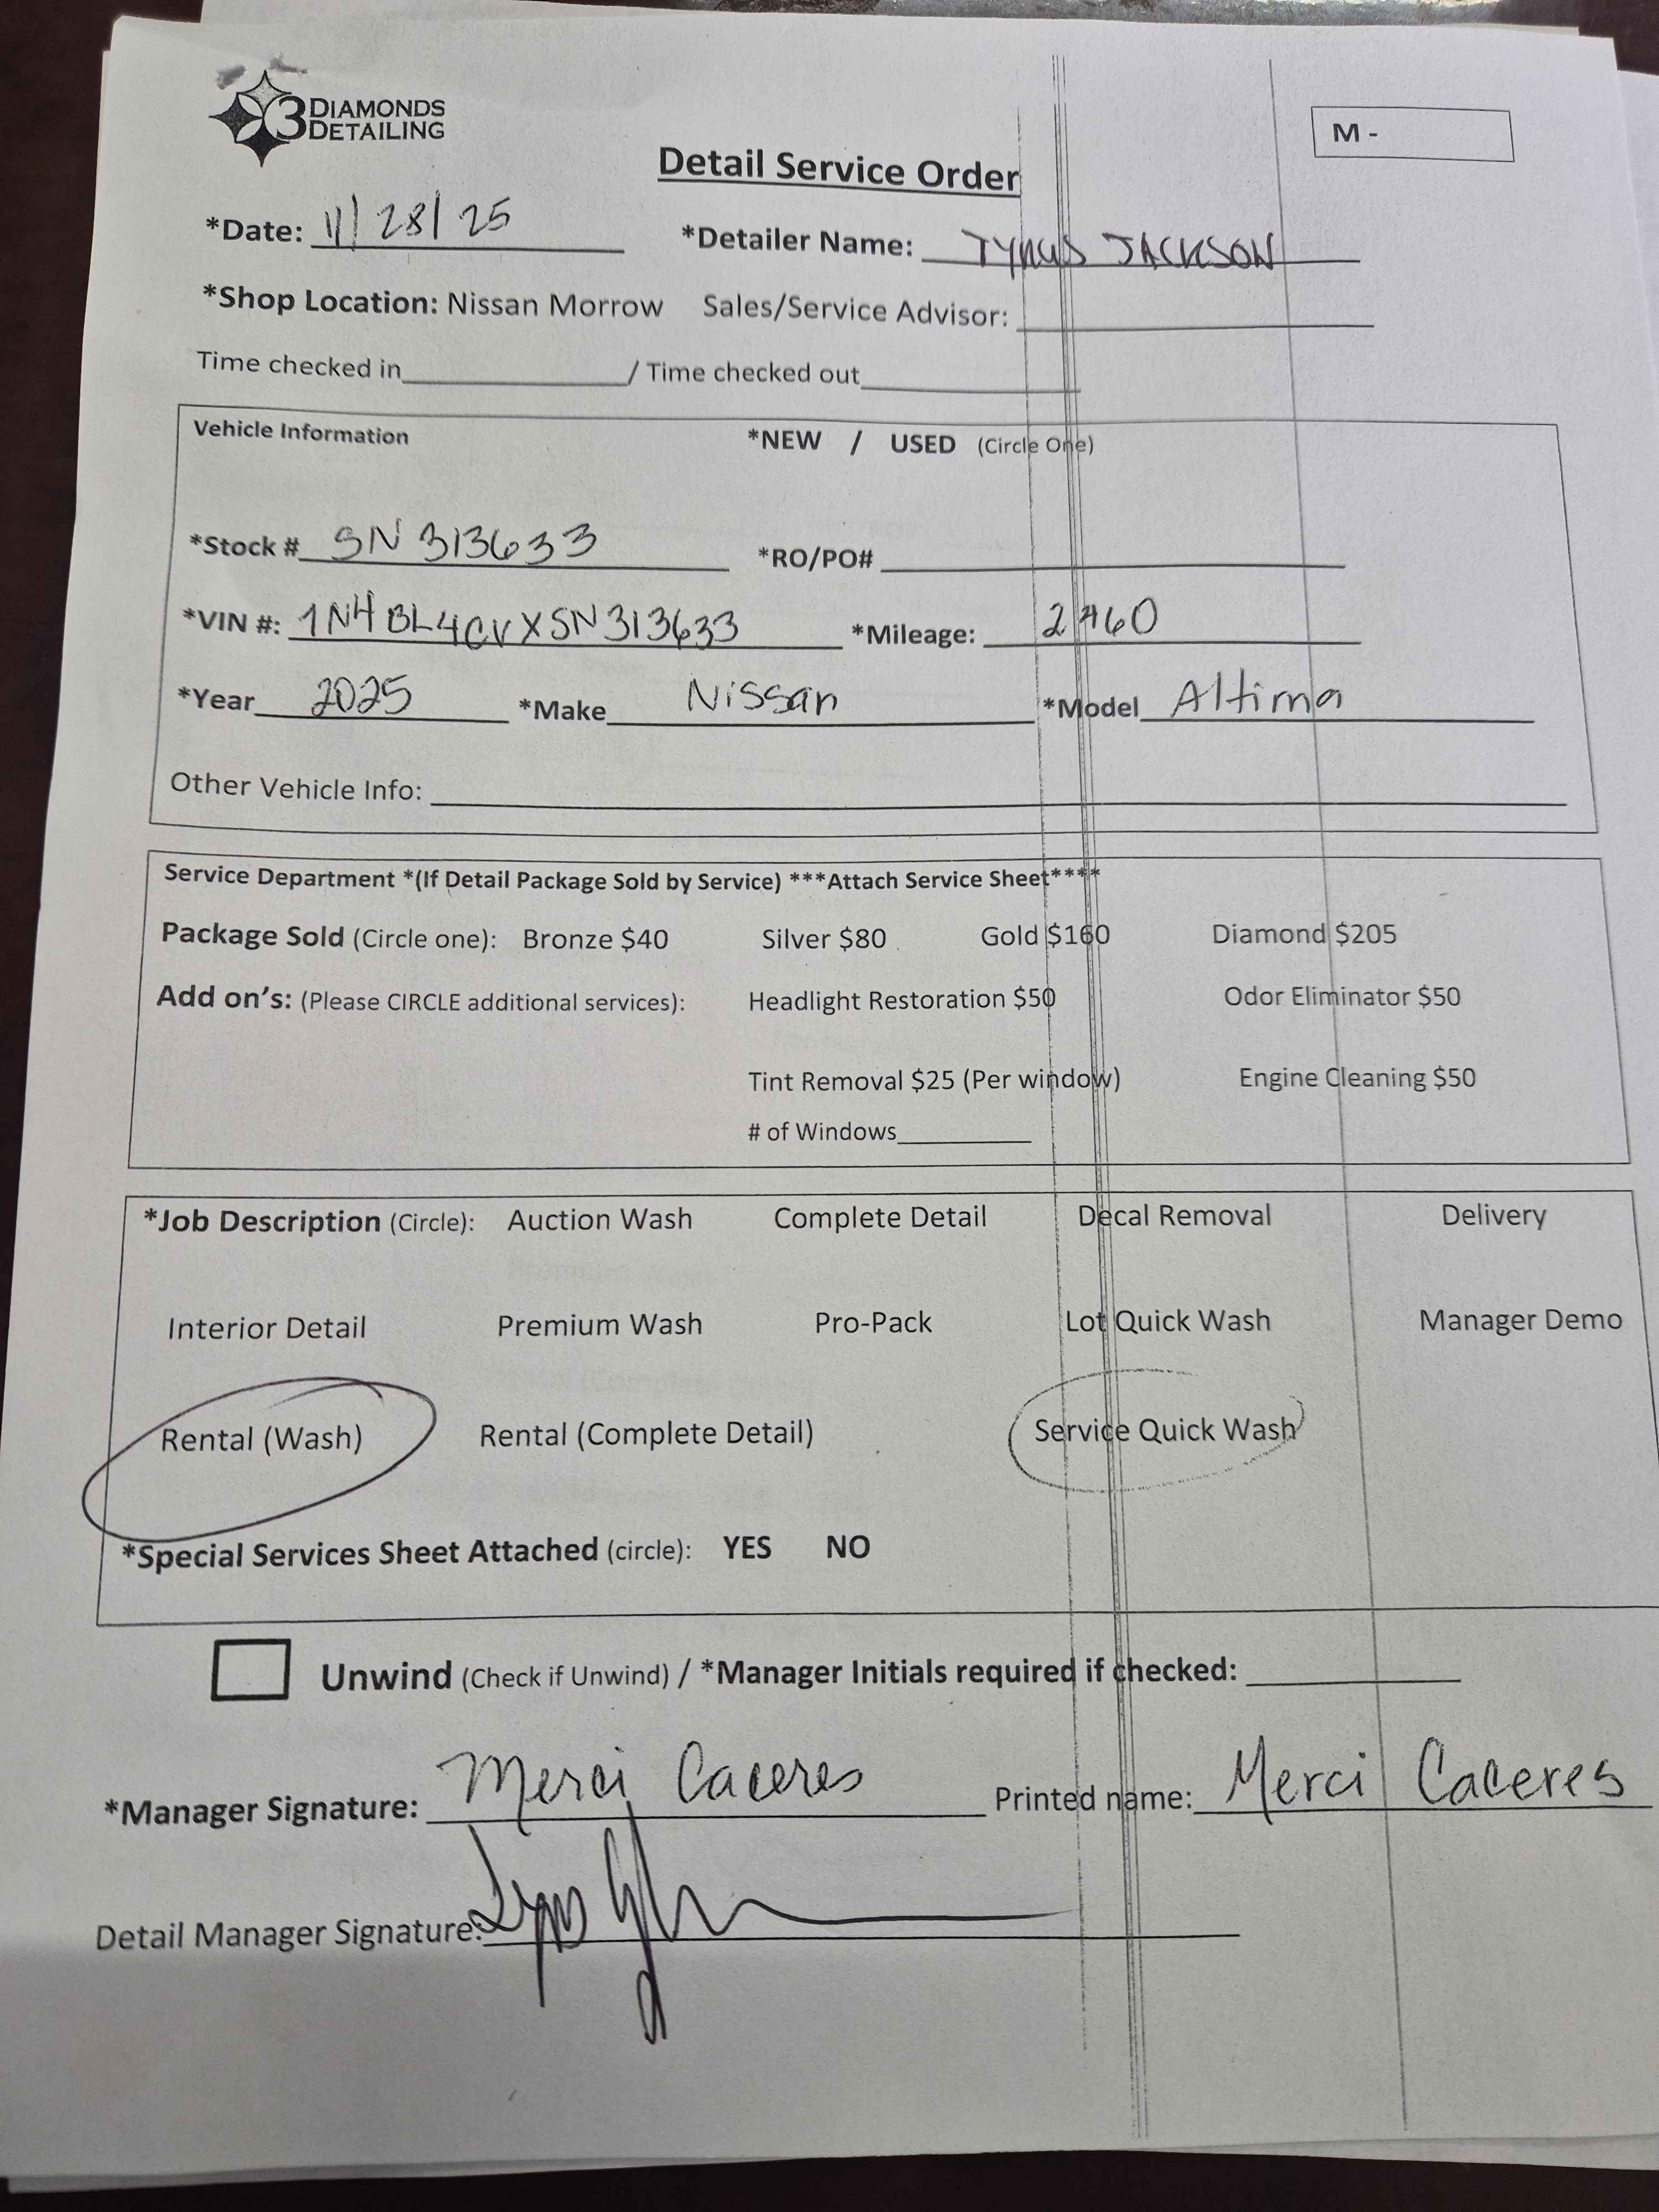 3 DIAMONDS
DETAILING
M -
Detail Service Order
*Date: 11/28/25 *Detailer Name: TYRUS JACKSON
*Shop Location: Nissan Morrow Sales/Service Advisor:
Time checked in / Time checked out
Vehicle Information *NEW / USED (Circle One)
*Stock # SN 313633 *RO/PO#
*VIN #: 1N4BL4CVXSN313633 *Mileage: 2460
*Year 2025 *Make Nissan *Model Altima
Other Vehicle Info:
Service Department *(If Detail Package Sold by Service) ***Attach Service Sheet****
Package Sold (Circle one): Bronze $40 Silver $80 Gold $160 Diamond $205
Add on's: (Please CIRCLE additional services): Headlight Restoration $50 Odor Eliminator $50
Tint Removal $25 (Per window) Engine Cleaning $50
# of Windows
*Job Description (Circle): Auction Wash Complete Detail Decal Removal Delivery
Interior Detail Premium Wash Pro-Pack Lot Quick Wash Manager Demo
Rental (Wash) Rental (Complete Detail) Service Quick Wash
*Special Services Sheet Attached (circle): YES NO
Unwind (Check if Unwind) / *Manager Initials required if checked:
*Manager Signature: Merci Caceres Printed name: Merci Caceres
Detail Manager Signature: